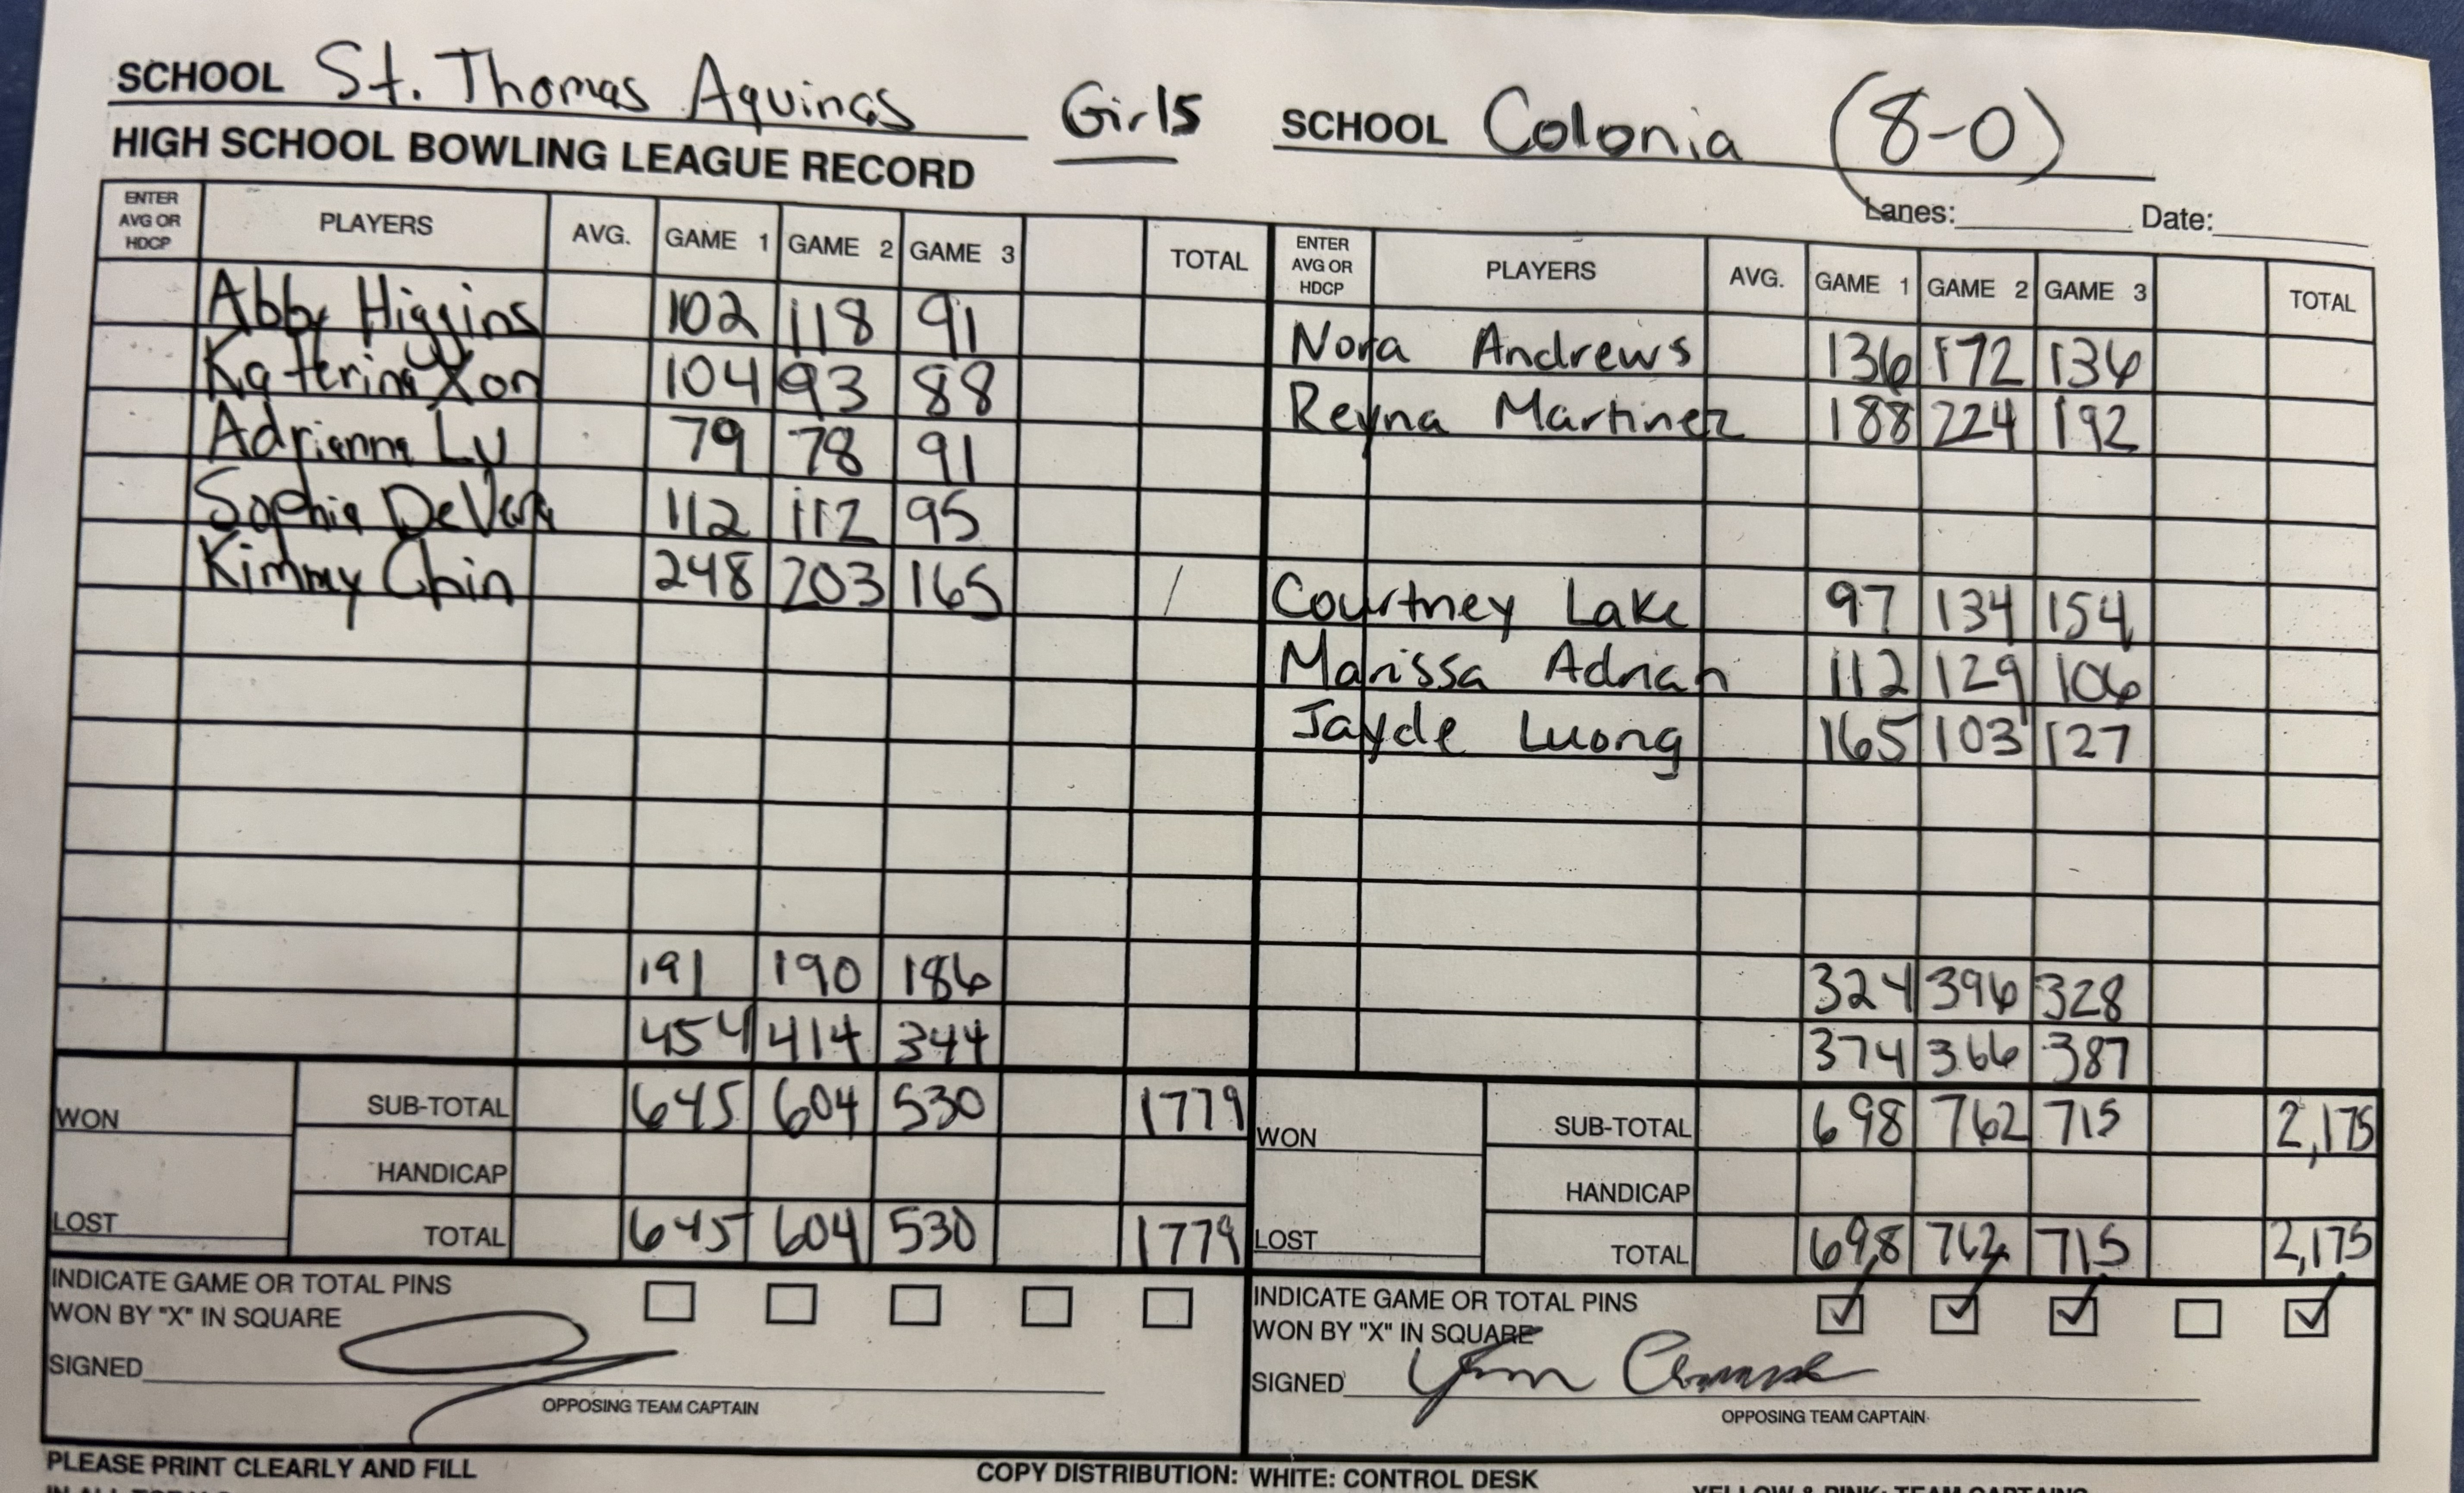 SCHOOL St. Thomas Aquinas Girls SCHOOL Colonia (8-0)
HIGH SCHOOL BOWLING LEAGUE RECORD
Lanes: Date:
ENTER AVG OR HDCP PLAYERS AVG. GAME 1 GAME 2 GAME 3 TOTAL
Abby Higgins 102 118 91
Katerina Xon 104 93 88
Adrianna Lu 79 78 91
Sophia DeVera 112 112 95
Kimmy Chin 248 203 165
191 190 186
454 414 344
WON SUB-TOTAL 645 604 530 1779
HANDICAP
LOST TOTAL 645 604 530 1779
INDICATE GAME OR TOTAL PINS
WON BY "X" IN SQUARE
SIGNED
OPPOSING TEAM CAPTAIN
ENTER AVG OR HDCP PLAYERS AVG. GAME 1 GAME 2 GAME 3 TOTAL
Nora Andrews 136 172 136
Reyna Martinez 188 224 192
Courtney Lake 97 134 154
Marissa Adrian 112 129 106
Jayde Luong 165 103 127
324 396 328
374 366 387
WON SUB-TOTAL 698 762 715 2,175
HANDICAP
LOST TOTAL 698 762 715 2,175
INDICATE GAME OR TOTAL PINS
WON BY "X" IN SQUARE
SIGNED
OPPOSING TEAM CAPTAIN
PLEASE PRINT CLEARLY AND FILL
COPY DISTRIBUTION: WHITE: CONTROL DESK